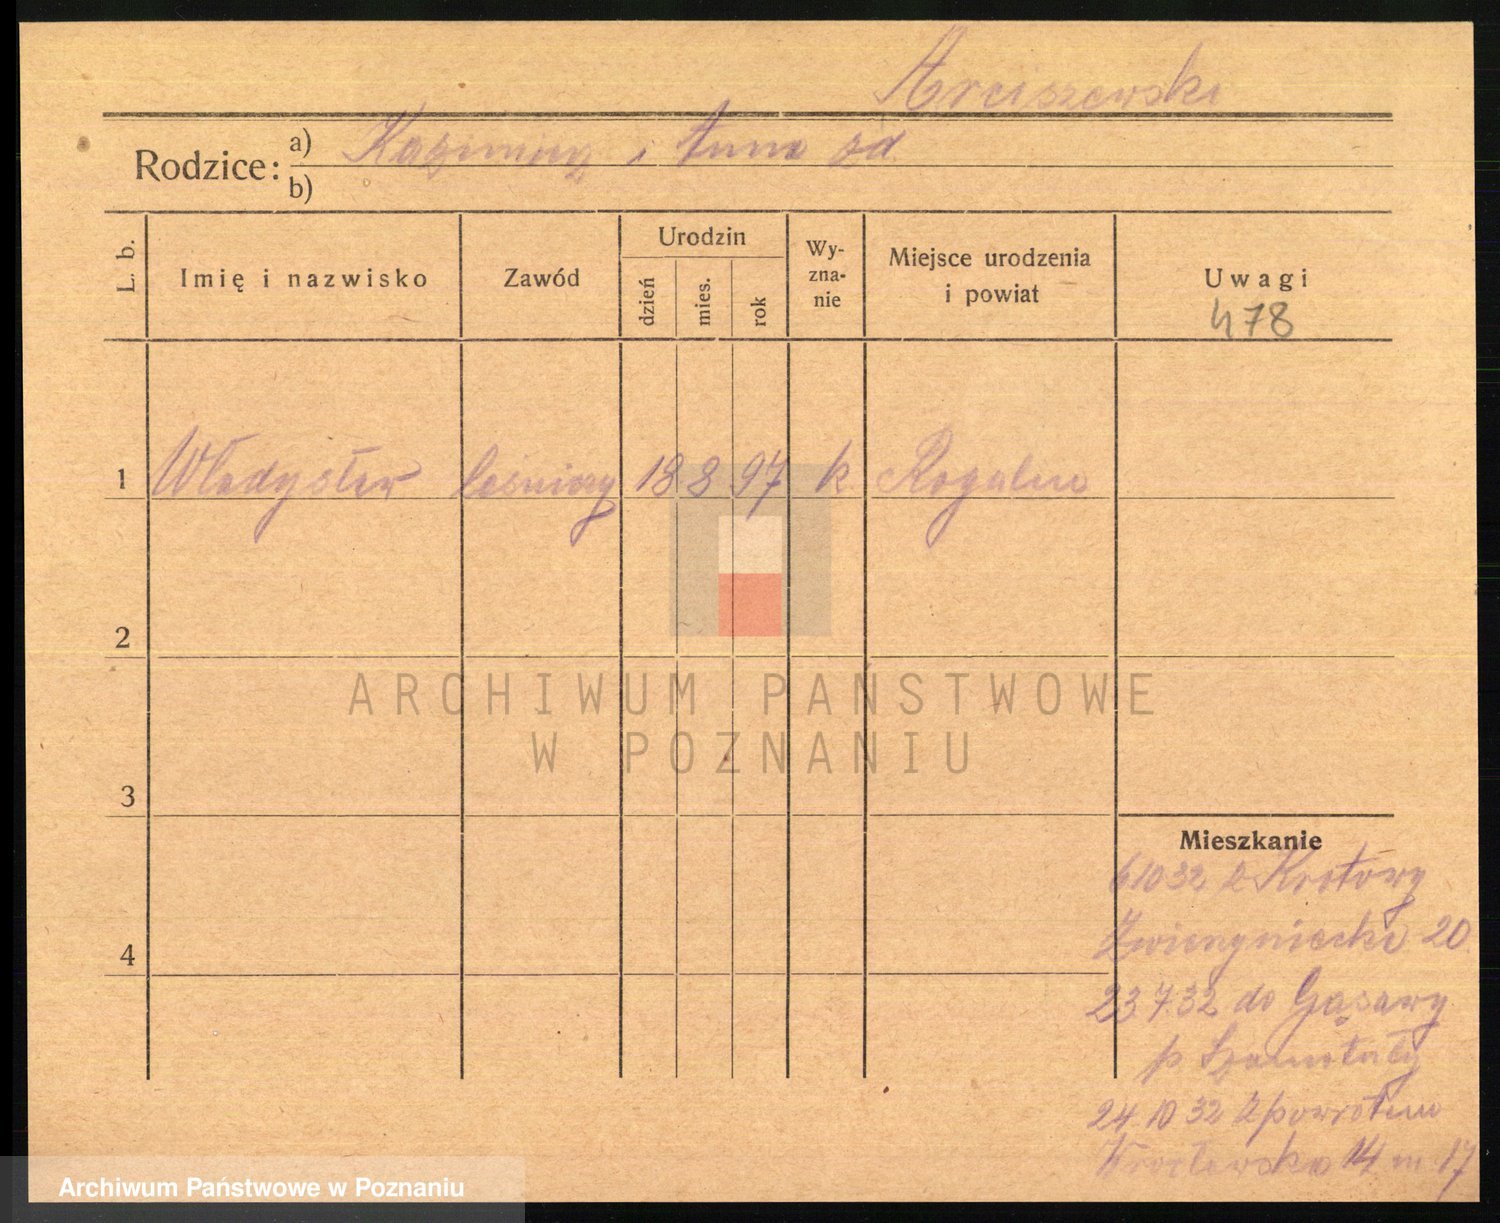 Arciszewski
Rodzice: a) Kazimierz i Anna zd
b)
L. b. Imię i nazwisko Zawód Urodzin dzień mies. rok Wy-zna-nie Miejsce urodzenia i powiat Uwagi
478
1 Władysław leśniczy 18 8 97 k Rogalin
2
3
4
Mieszkanie
6 10 32 z Krotowy
Zwierzyniecka 20
23 7 32 do Gąsawy
p Szamotuły
24 10 32 z powrotem
Wrocławska 14 m 17
ARCHIWUM PAŃSTWOWE
W POZNANIU
Archiwum Państwowe w Poznaniu